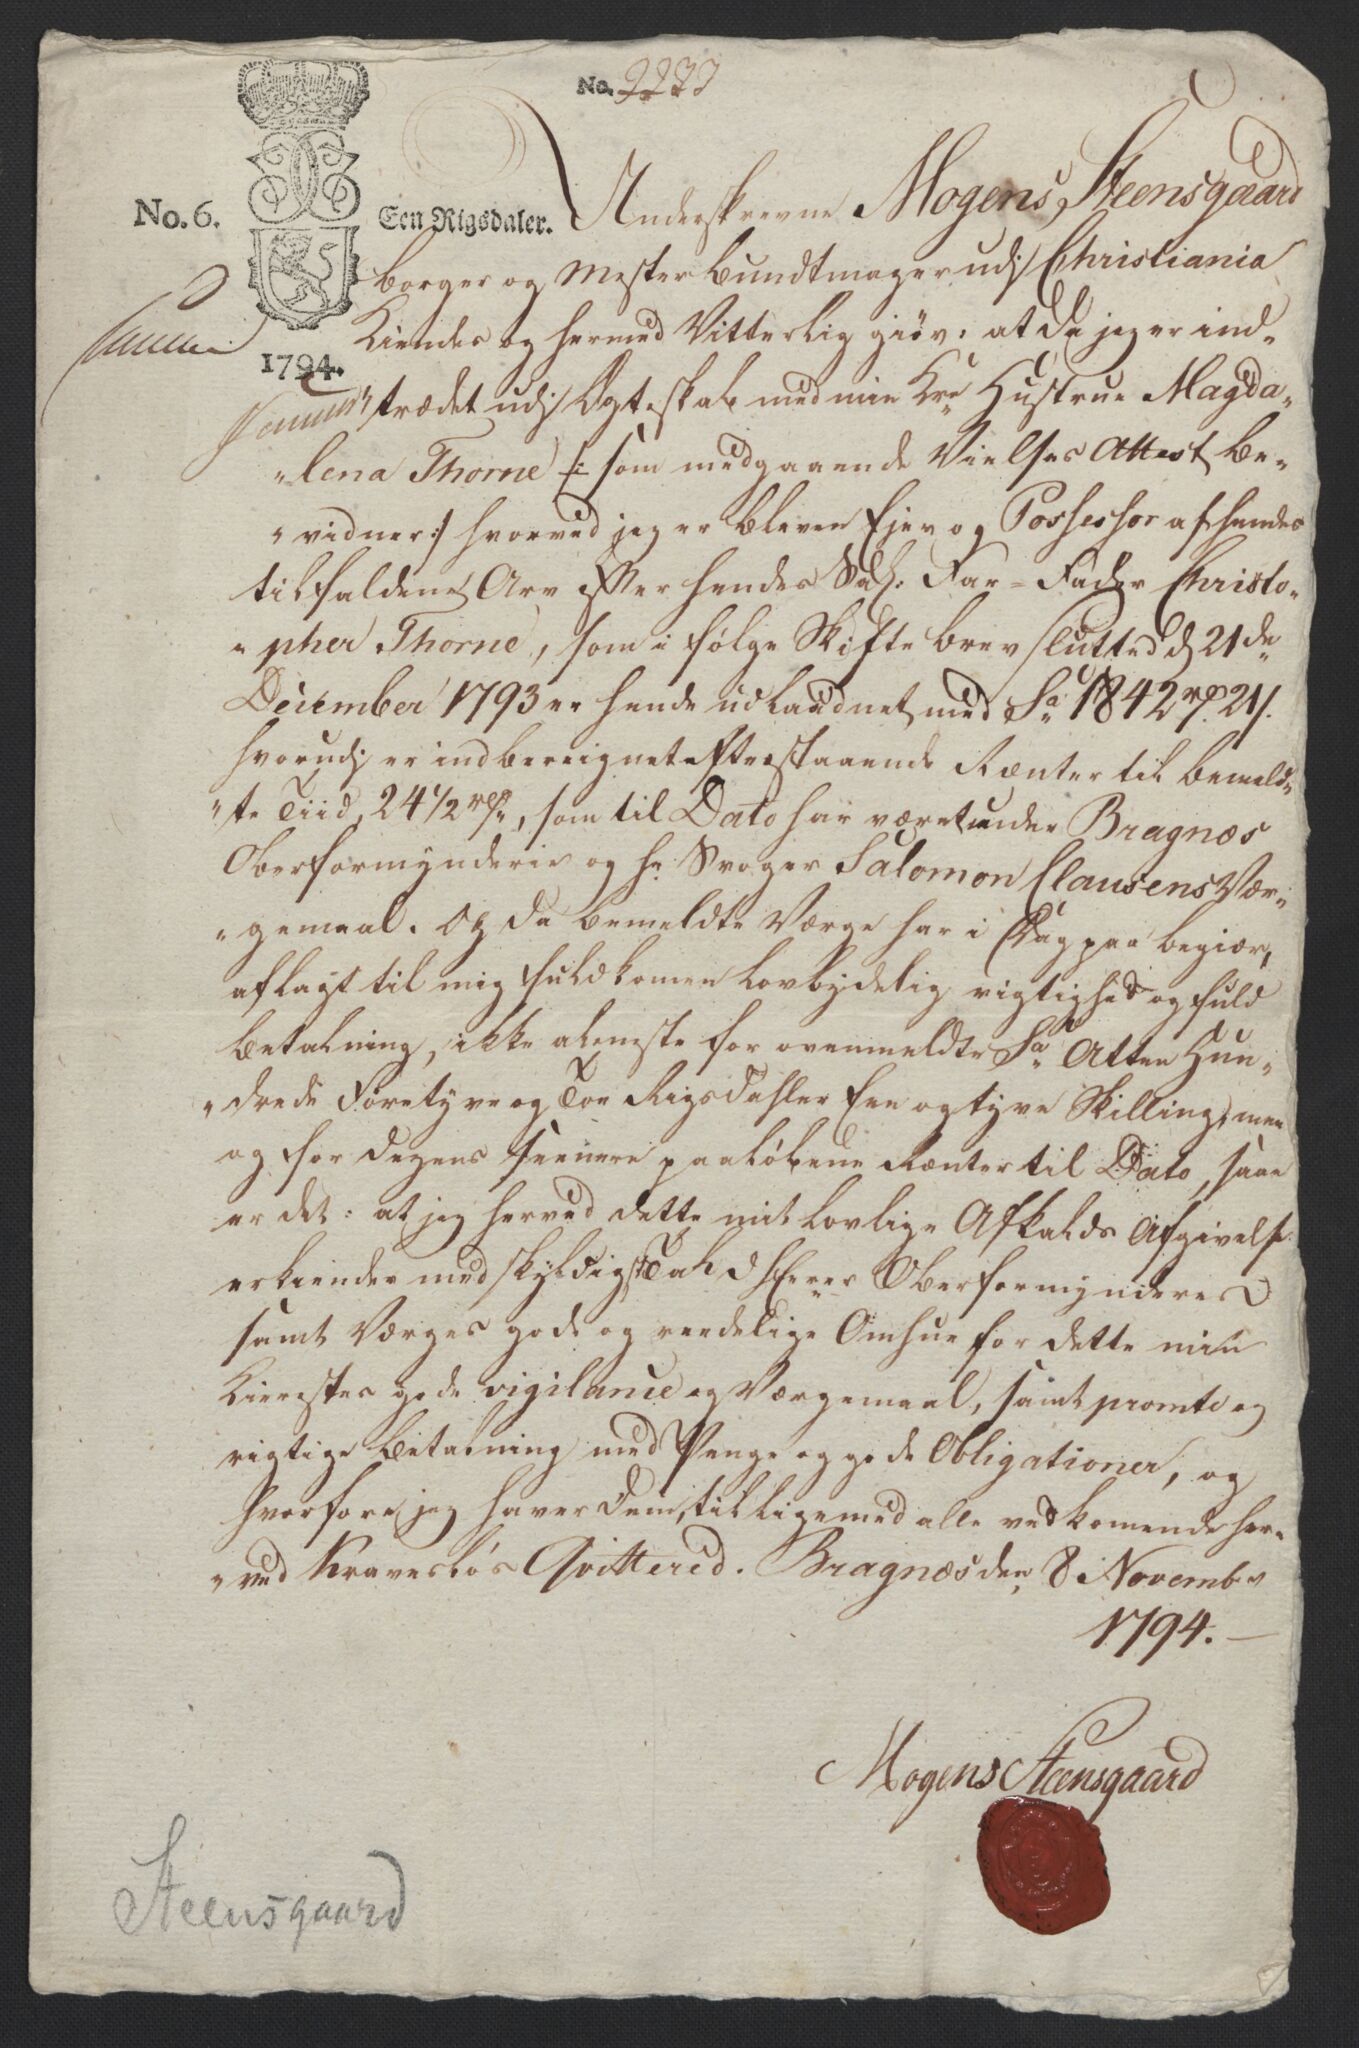 No. 2233
No. 6.
Een Rigsdaler.
1794.
Underskrevne Mogens Steensgaard
borger og Mester bundtmager udj Christiania
Kiendes og hermed Vitterlig giør: at da jeg er ind-
trædet udj Ægteskab med min Kre Hustrue Magda-
"lena Thorne /: som medgaaende Vielses Attest be-
"vidner :/ hvorved jeg er bleven Ejer og Possessor af hendes
tilfaldene Arv efter hendes Sal: Far-Fader Christo-
"pher Thorne, som i følge Skiftebrev slutted d 21de
December 1793 er hende udlaudnet med Sa 1842 rd. 21 s.
hvorudj er indbereignet efterstaaende Renter til bemeld-
"te Tiid, 24 1/2 rd, som til Dato har været under Bragnæs
Oberformynderie og Hr. Svoger Salomon Clausens Vær-
"gemaal. Og da bemeldte Værge har i Dag paa begiær,
aflagt til mig fuldkomen lovbydelig rigtighed og fuld
betalning, ikke aleneste for ovenmeldte Sa Atten Hun-
"drede Foretyve og Toe Rigsdahler Een og tyve Skilling, men
og for dezens seenere paaløbene Renter til Dato, saa
er det: at jeg herved dette mit lovlige Afkalds Afgivelse
erkiender med skyldigst Tak d Herrer Oberformynderes
samt Værges gode og reedelige Omhue for dette min
Kierestes gode vigilance og Værgemaal, samt promte og
rigtige betalning med Penge og gode Obligationer, og
hvorfore jeg haver dem, tilligemed alle vedkomende her-
"ved Kravesløs Qvittered. Bragnæs den 8 Novembr
1794.
Mogens Steensgaard
Steensgaard